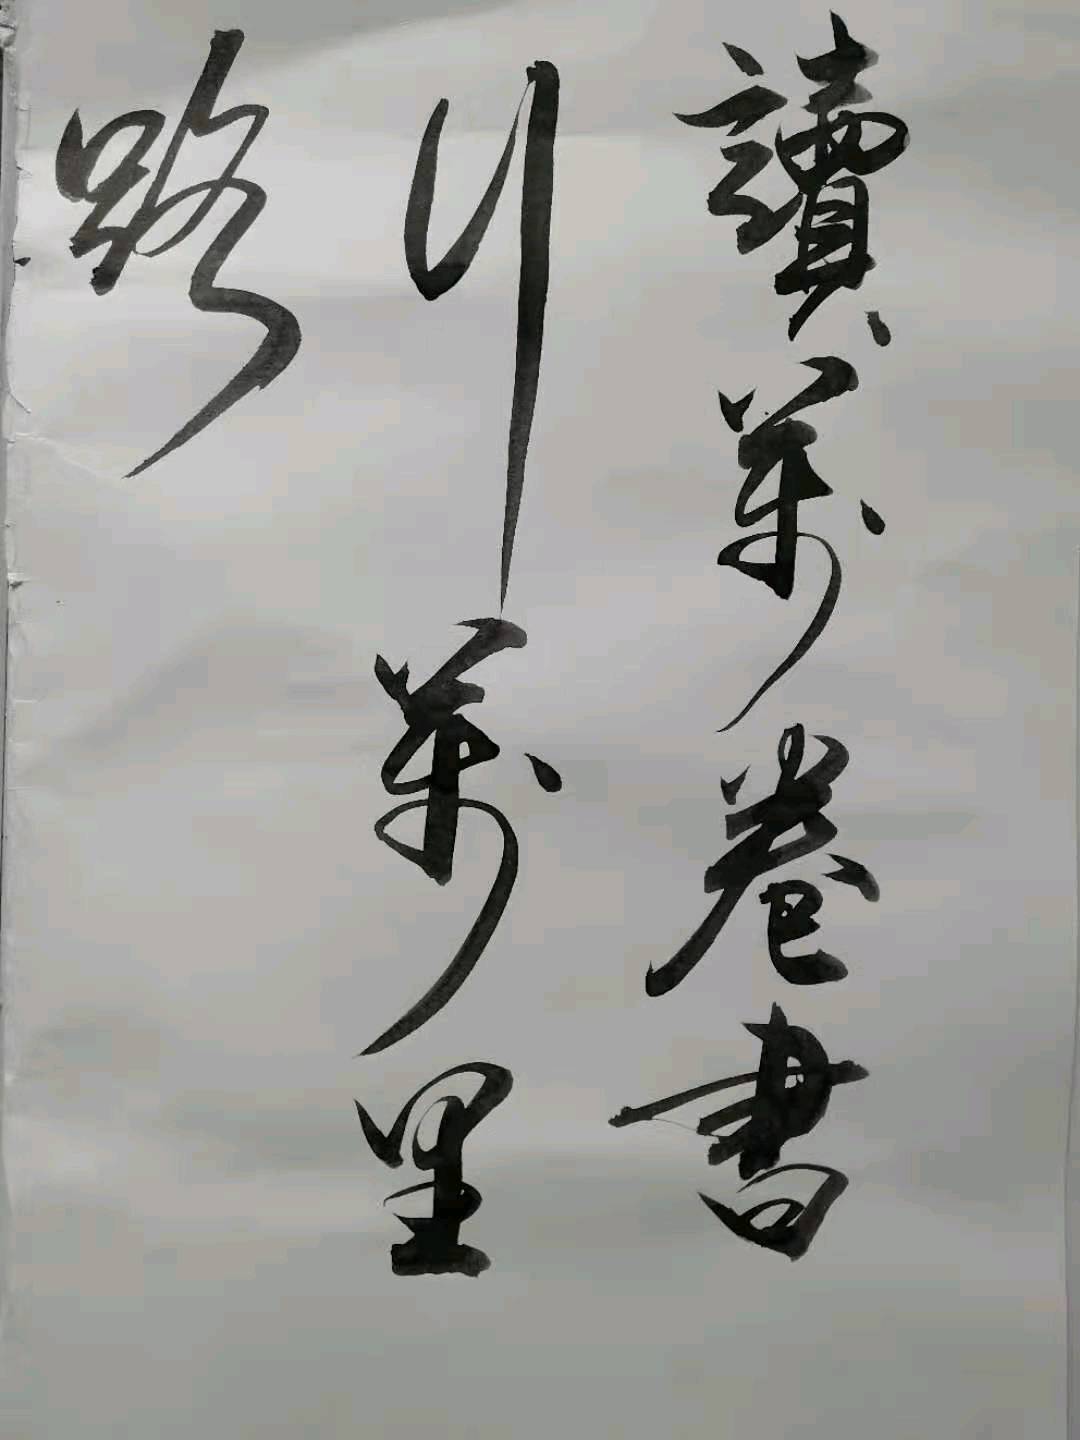 讀萬卷書
行萬里
路